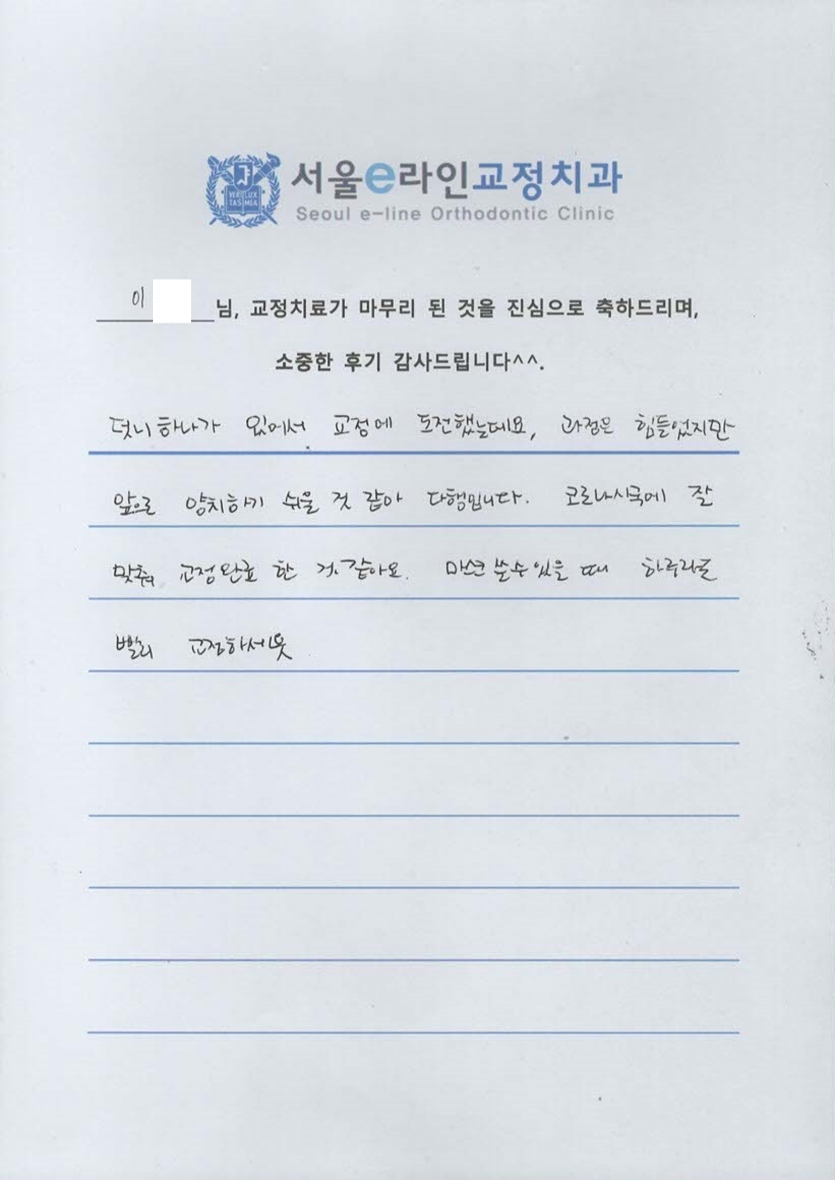 서울e라인교정치과
Seoul e-line Orthodontic Clinic
VERI LUX
TAS MEA
이 님, 교정치료가 마무리 된 것을 진심으로 축하드리며,
소중한 후기 감사드립니다^^.
덧니 하나가 있어서 교정에 도전했는데요, 과정은 힘들었지만
앞으로 양치하기 쉬울 것 같아 다행입니다. 코로나시국에 잘
맞춰 교정완료 한 거 같아요. 마스크 쓸수있을 때 하루라도
빨리 교정하세욧